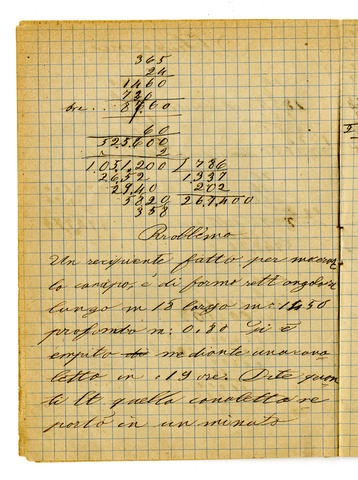 365
24
1460
730
ore... 8760
60
525600
2
1.051.200 / 786
2652 1337
2940 202
5820 267,400
358
Problema
Un recipiente fatto per macera-
lo canapa, è di forma rettangolare
lungo m 18 largo m: 14 50
profondo m: 0.80 Si è
empito mediante una cana
letta in 19 ore. Dite quan
ti lt quella canaletta re
portò in un minuto